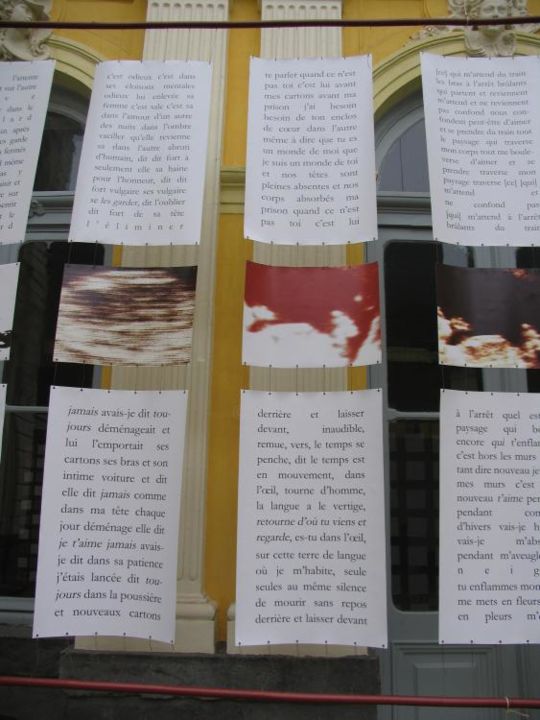 l'attente
sur l'autre
dans le
après
garde
fermés
même
c'est odieux c'est dans
ses éloisons mentales
odieux lui enlevée sa
femme c'est sale c'est sa
dans l'amour d'un autre
des nuits dans l'ombre
vaciller qu'elle revienne
sa dans autre abruti
d'humain, dit dit fort à
seulement elle sa haine
pour l'honneur, dit dit
fort vulgaire ses vulgaire
se les garder, dit l'oublier
dit fort de sa tête
l ' é l i m i n e r
te parler quand ce n'est
pas toi c'est lui avant
mes cartons avant ma
prison j'ai besoin
besoin de ton enclos
de cœur dans l'autre
même à dire que tu es
un monde de moi que
je suis un monde de toi
et nos têtes sont
pleines absentes et nos
corps absorbés ma
prison quand ce n'est
pas toi c'est lui
[ce] qui m'attend du train
les bras à l'arrêt brûlants
qui partent et reviennent
m'attend et ne reviennent
pas confond nous con-
fondent peut-être d'aimer
et se prendre du train tout
le paysage qui traverse
mon corps tout me boule-
verse d'aimer et se
prendre traverse mon
paysage traverse [ce] [qui]
m'attend et
ne confond pas
[qui] m'attend à l'arrêt
brûlants du train
jamais avais-je dit tou-
jours déménageait et
lui l'emportait ses
cartons ses bras et son
intime voiture et dit
elle dit jamais comme
dans ma tête chaque
jour déménage elle dit
je t'aime jamais avais-
je dit dans sa patience
j'étais lancée dit tou-
jours dans la poussière
et nouveaux cartons
derrière et laisser
devant, inaudible,
remue, vers, le temps se
penche, dit le temps est
en mouvement, dans
l'œil, tourne d'homme,
la langue a le vertige,
retourne d'où tu viens et
regarde, es-tu dans l'œil,
sur cette terre de langue
où je m'habite, seule
seules au même silence
de mourir sans repos
derrière et laisser devant
à l'arrêt quel est
paysage qui
encore qui t'enflam
c'est hors les murs
tant dire nouveau je
mes murs c'est
nouveau t'aime
pendant
d'hivers vais-je
vais-je
pendant m'aveugl
n e i g
tu enflammes mon
me mets en fleurs
en pleurs